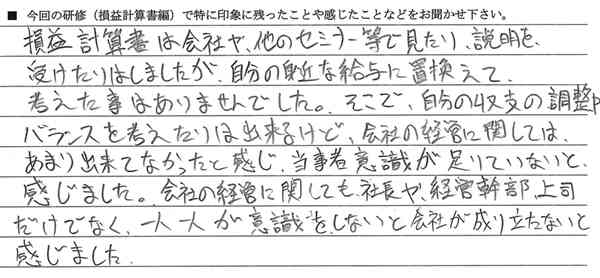 ■ 今回の研修（損益計算書編）で特に印象に残ったことや感じたことなどをお聞かせ下さい。
損益計算書は会社や、他のセミナー等で見たり、説明を、
受けたりはしましたが、自分の身近な給与に置換えて、
考えた事はありませんでした。そこで、自分の収支の調整や
バランスを考えたりは出来るけど、会社の経営に関しては、
あまり出来てなかったと感じ、当事者意識が足りていないと、
感じました。会社の経営に関しても、社長や、経営幹部、上司
だけでなく、一人一人が意識をしないと会社が成り立たないと
感じました。